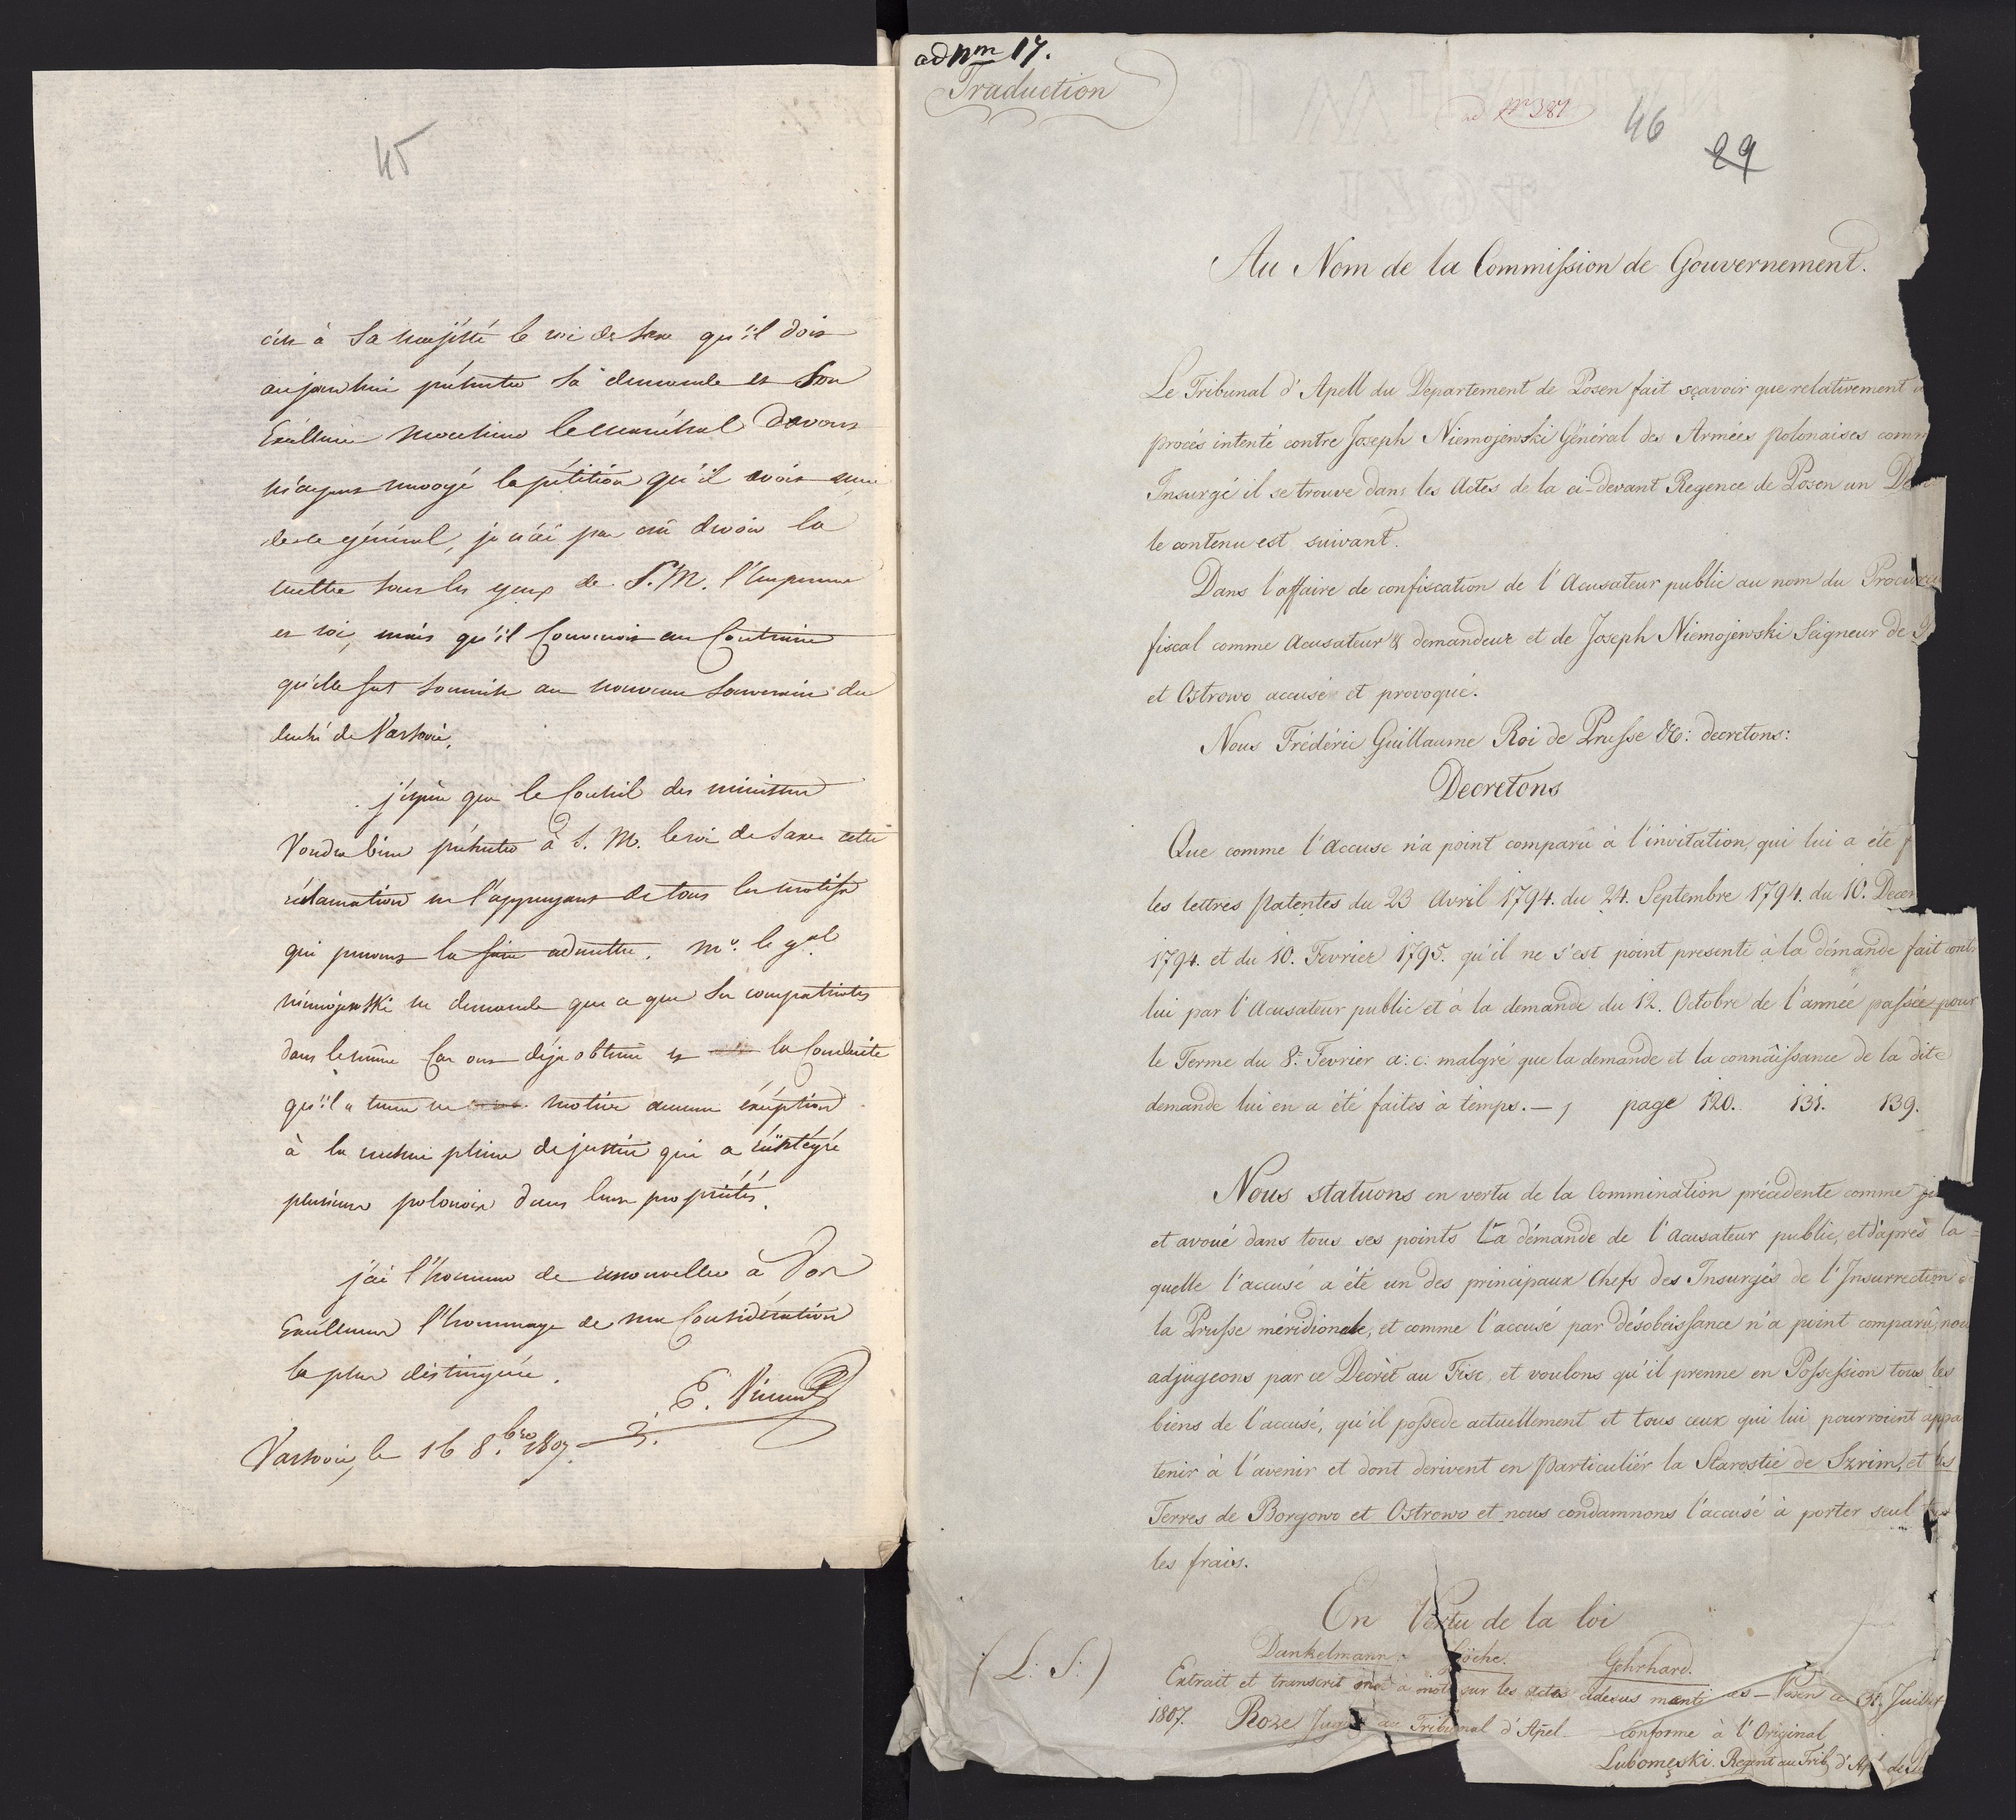 45
c'est à Sa majesté le roi de Saxe qu'il doit
aujourd'hui présenter sa demande et Son
Excellence monsieur le maréchal Davout
m'ayant envoyé la pétition qu'il avoit reçue
de ce général, je n'ai pas crû devoir la
mettre sous les yeux de S. M. l'Empereur
et roi, mais qu'il convenoit au contraire
qu'elle fut soumise au nouveau souverain du
duché de Varsovie.
j'espère que le Conseil des ministres
voudra bien présenter à S. M. le roi de Saxe cette
réclamation en l'appuyant de tous les motifs
qui peuvent la faire admettre. Mr. le gal
niemojewski ne demande que ce que ses compatriotes
dans le même cas ont déja obtenu et la conduite
qu'il a tenue ne motive aucune exception
à la mesure pleine de justice qui a réintégré
plusieurs polonois dans leurs propriétés.
j'ai l'honneur de renouveller à Vos
Excellences l'hommage de ma considération
la plus distinguée.
E. Vincent
Varsovie, le 16 8.bre 1807.
ad Nm 17.
Traduction
ad No 381
46
29
Au Nom de la Commission de Gouvernement.
Le Tribunal d'Apell du Departement de Posen fait sçavoir que relativement
procés intenté contre Joseph Niemojewski Général des Armées polonaises comm
Insurgé il se trouve dans les Actes de la ci-devant Regence de Posen un De
le contenu est suivant.
Dans l'affaire de confiscation de l'Acusateur public au nom du Procureu
fiscal comme Acusateur & demandeur et de Joseph Niemojewski Seigneur de
et Ostrowo accusé et provoqué.
Nous Fréderic Guillaume Roi de Prusse &c: decretons:
Decretons
Que comme l'Accusé n'a point comparû à l'invitation, qui lui a été f
les lettres Patentes du 23 Avril 1794. du 24. Septembre 1794. du 10. Decem
1794. et du 10. Fevrier 1795. qu'il ne s'est point presenté à la démande fait contr
lui par l'Acusateur public et à la demande du 12. Octobre de l'année passée pour
le Terme du 8. Fevrier a: c: malgré que la demande et la connâissance de la dite
demande lui en a été faites à temps. — , page 120. 131. 139.
Nous statuons en vertu de la Commination précedente comme
et avoué dans tous ses points La démande de l'Acusateur public, et d'après la
quelle l'accusé a été un des principaux Chefs des Insurgés de l'Insurrection de
la Prusse méridionale, et comme l'accusé par désobeissance n'a point comparû, nou
adjugeons par ce Decrèt au Fisc, et voulons qu'il prenne en Possession tous les
biens de l'accusé, qu'il possede actuellement et tous ceux qui lui pourroient appa
tenir à l'avenir et dont derivent en Particuliér la Starostie de Szrim, et les
Terres de Borgowo et Ostrowo et nous condamnons l'accusé à porter seul
les frais.
En Vertu de la loi
(L: S:)
Dankelmann. Göche. Gehrhard.
Extrait et transcrit mot à mot sur les actes cidesus menti es — Posen ce 31. Juillet
1807. Roze Juge au Tribunal d'Apel — Conforme à l'Original
Lubomęski. Regent au Trib d'Ap